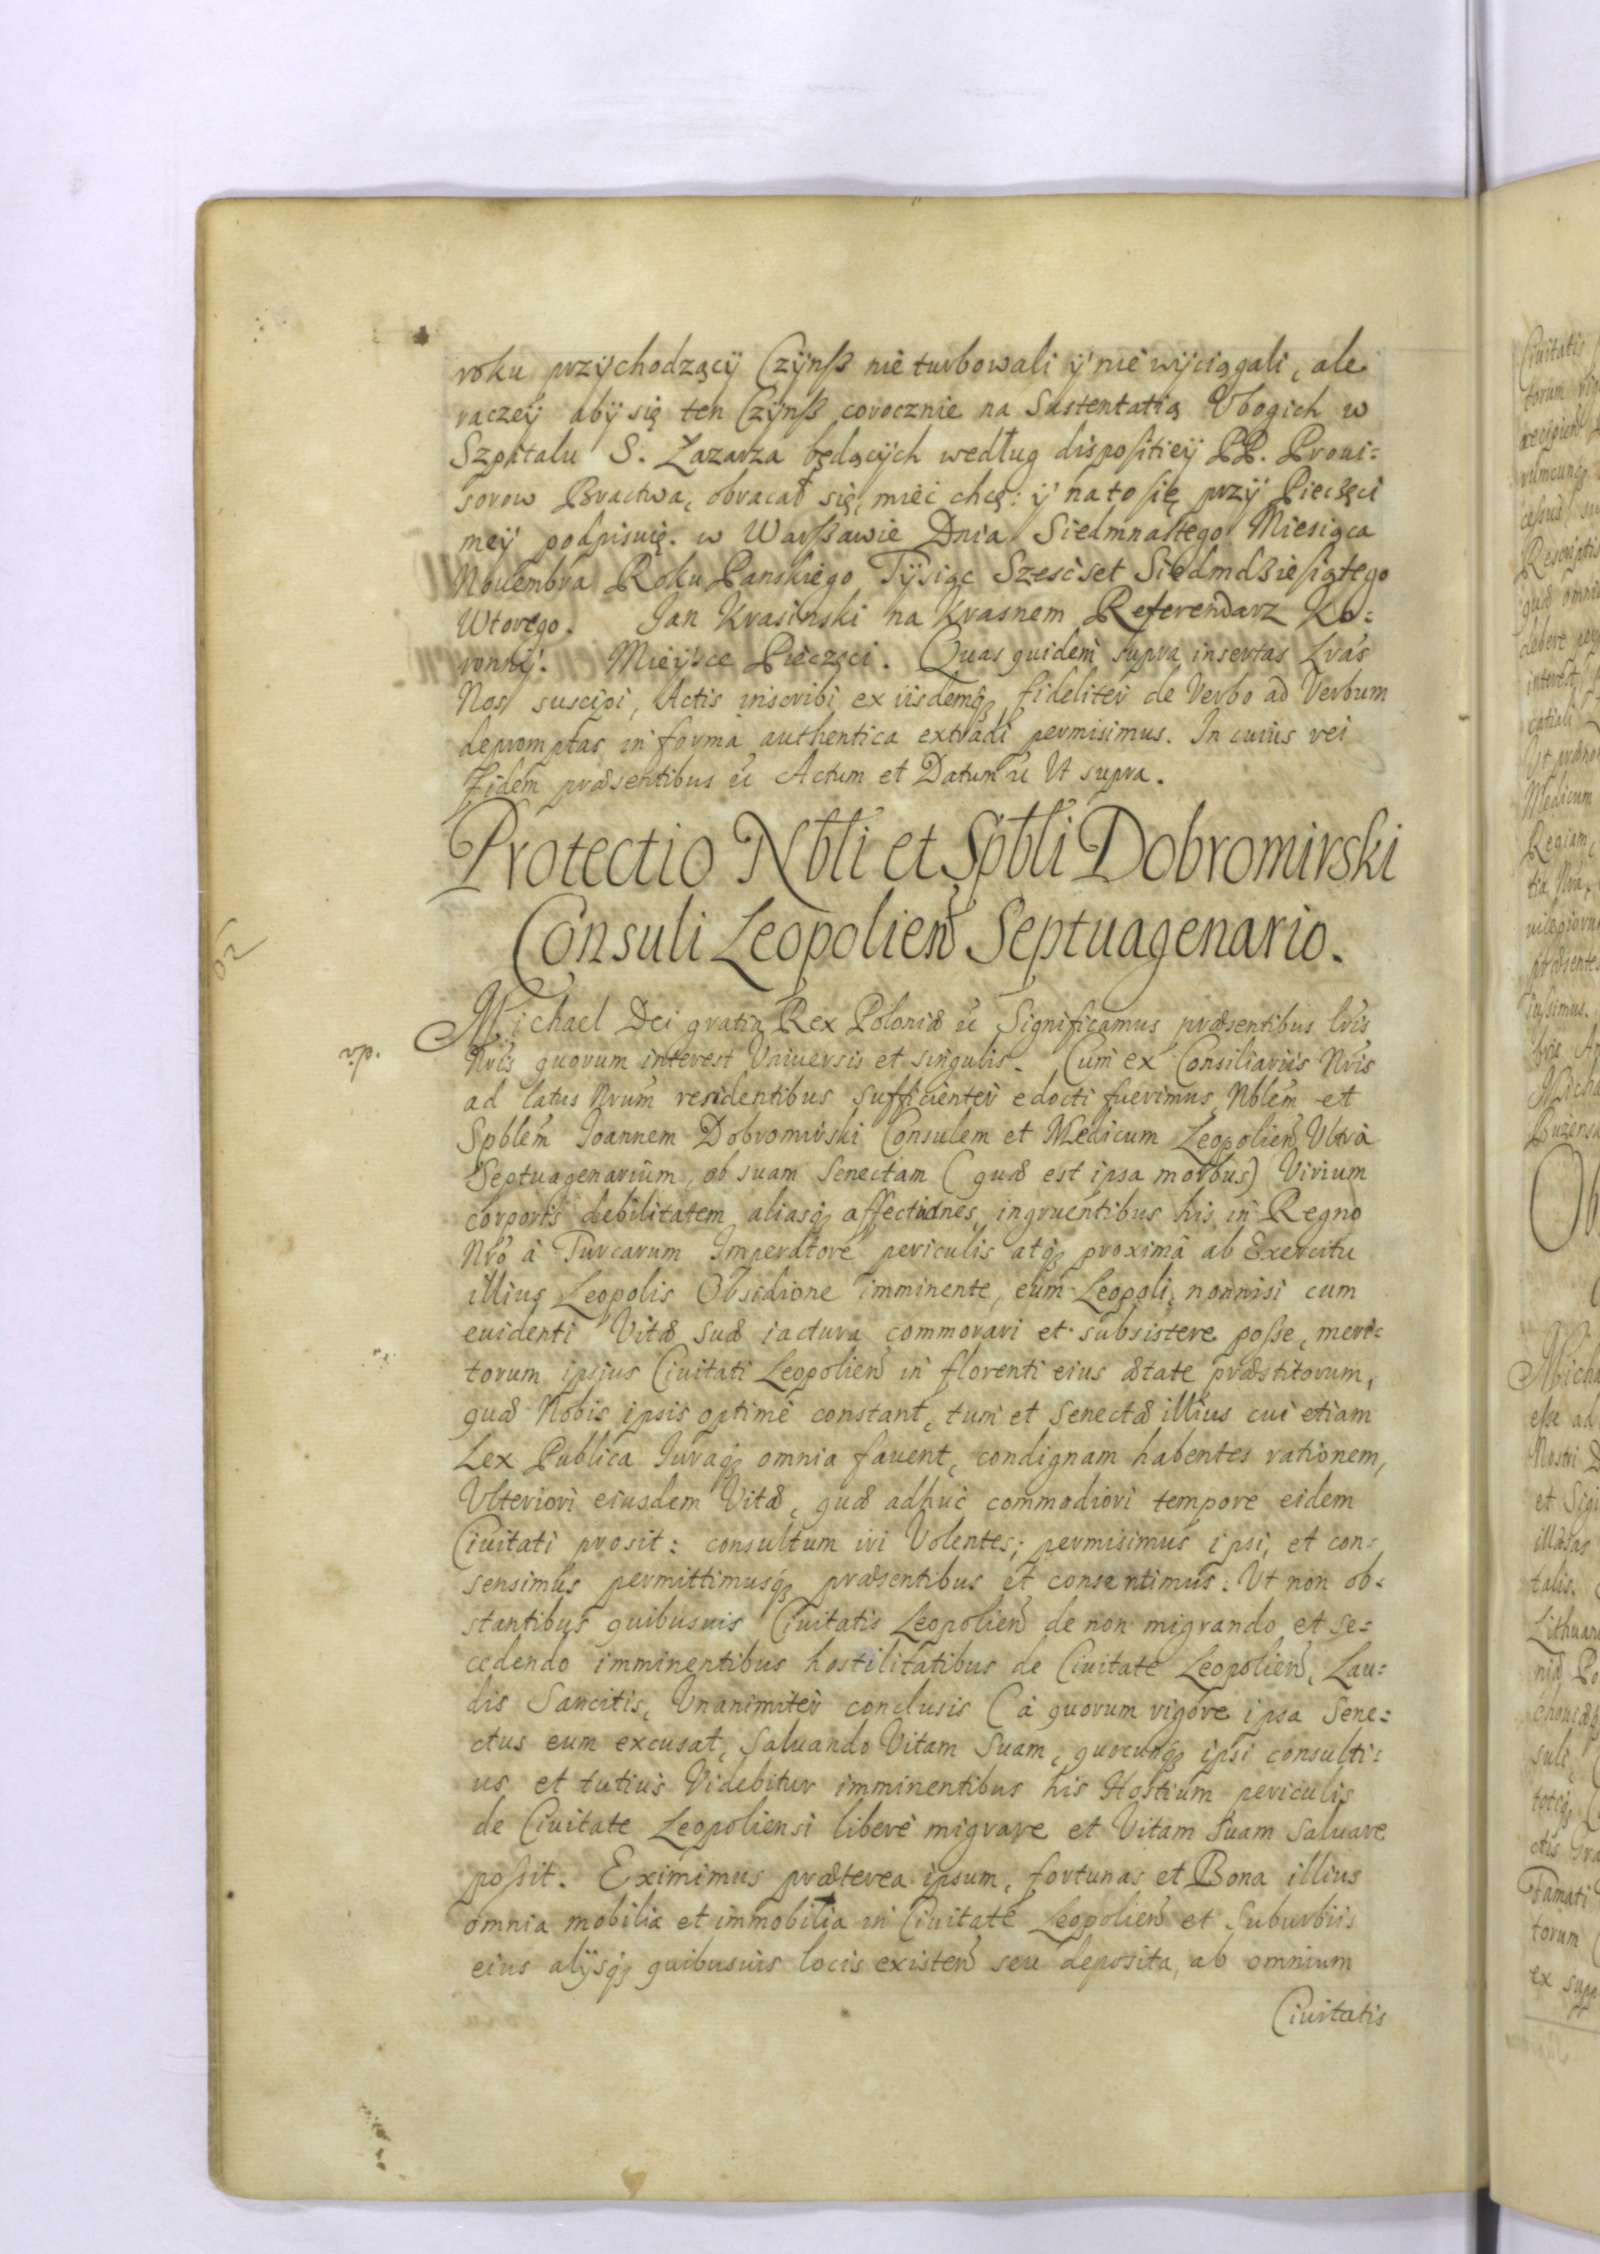 roku przÿchodzącÿ Czÿnß nie turbowali ÿ nie wÿciągali, ale
raczeÿ abÿ się ten Czÿnß corocznie na Sustentatią Vbogich w
Szpitalu S. Łazarza będącÿch według dispositieÿ PP. Proui=
sorow Bractwa, obracał się, mieć chcę: ÿ na to się przÿ Pieczęci
meÿ podpisuię. w Warßawie Dnia Siedmnastego Miesiąca
Nouembra Roku Panskiego Tÿsiąc Szescset Siedmdziesiątego
Wtorego. Jan Krasinski na Krasnem Referendarz Ko=
ronnÿ. Mieÿsce Pieczęci. Quas quidem supra insertas Lras
Nos suscipi, Actis inscribi, ex iisdemq3 fideliter de Verbo ad Verbum
depromptas in forma authentica extradi permisimus. In cuius rei
Fidem præsentibus &c Actum et Datum &c Vt supra.
Protectio Nbli et Spbli Dobromirski
Consuli Leopolien Septuagenario.
Michael Dei gratia Rex Poloniæ &c Significamus præsentibus lris
Nris quorum interest Vniuersis et singulis. Cum ex Consiliariis Nris
ad latus Nrum residentibus sufficienter edocti fuerimus, Nblem et
Spblem Joannem Dobromirski Consulem et Medicum Leopolien, Vltra
Septuagenarium, ob suam Senectam (quæ est ipsa morbus) Virium
corporis debilitatem aliasq3 affectiones, ingruentibus his in Regno
Nro à Turcarum Imperatore periculis atq3 proximâ ab Exercitu
illius Leopolis Obsidione imminente, eum Leopoli, nonnisi cum
euidenti Vitæ suæ iactura commorari et subsistere posse, meri=
torum ipsius Ciuitati Leopolien in florenti eius ætate præstitorum,
quæ Nobis ipsis optimè constant, tum et Senectæ illius cui etiam
Lex Publica Iuraq3 omnia fauent, condignam habentes rationem,
Vlteriori eiusdem Vitæ, quæ adhuc commodiori tempore eidem
Ciuitati prosit: consultum iri Volentes; permisimus ipsi, et con=
sensimus permittimusq3 præsentibus et consentimus: Vt non ob=
stantibus quibusuis Ciuitatis Leopolien de non migrando et se=
cedendo imminentibus hostilitatibus de Ciuitate Leopolien, Lau=
dis Sancitis, Vnanimiter conclusis (à quorum rigore ipsa Sene=
ctus eum excusat, Saluando Vitam Suam, quocunq3 ipsi consulti=
us et tutius Videbitur imminentibus his Hostium periculis
de Ciuitate Leopoliensi liberè migrare et Vitam Suam Saluare
possit. Eximimus præterea ipsum, fortunas et Bona illius
omnia mobilia et immobilia in Ciuitate Leopolien et Suburbiis
eius alÿsq3 quibusuis locis existen seu deposita, ab omnium
Ciuitatis